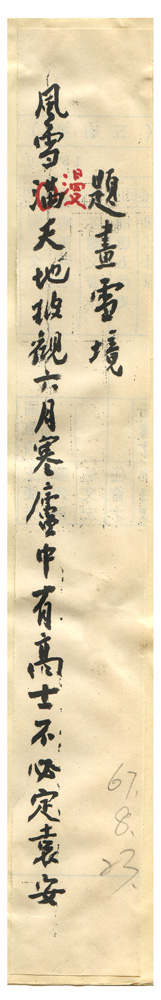 題畫雪境
風雪滿天地披觀六月寒廬中有高士不必定袁安
漫
67.
8.
23.